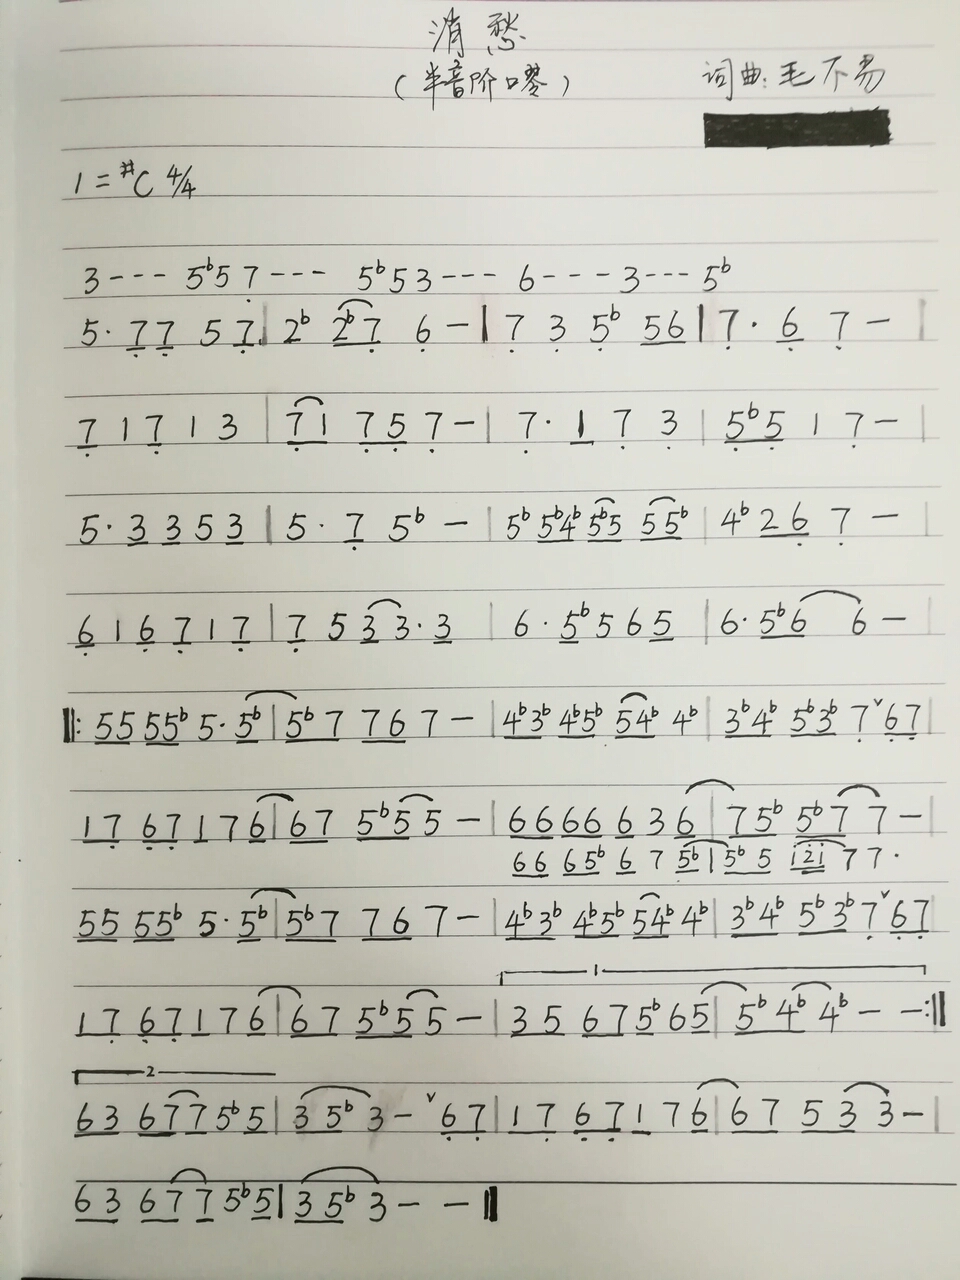 消愁
(半音阶口琴)
词曲:毛不易
1=#C 4/4
3--- 5b57--- 5b53--- 6---3--- 5b
5·77 57|2b 2b7 6-|7 3 5b 56|7·6 7-|
71713|71 757-|7·1 7 3|5b5 1 7-|
5·3353|5·7 5b-|5b 5b4b 5b5 55b|4b26 7-|
616717|7 53 3·3|6·5b565|6·5b6 6-|
‖:55 55b 5·5b|5b7 767-|4b3b 4b5b 54b 4b|3b4b 5b3b 7ˇ67|
17 67176|67 5b55-|6666 636|75b 5b7 7-|
66 65b 6 7 5b|5b 5 i2i 77·
55 55b 5·5b|5b7 767-|4b3b 4b5b 54b 4b|3b4b 5b3b 7ˇ67|
1
17 67176|67 5b55-|35 675b65|5b4b 4b--:‖
2
63 6775b5|35b 3-ˇ67|17 67176|67 533-|
63 677 5b5|35b 3--‖